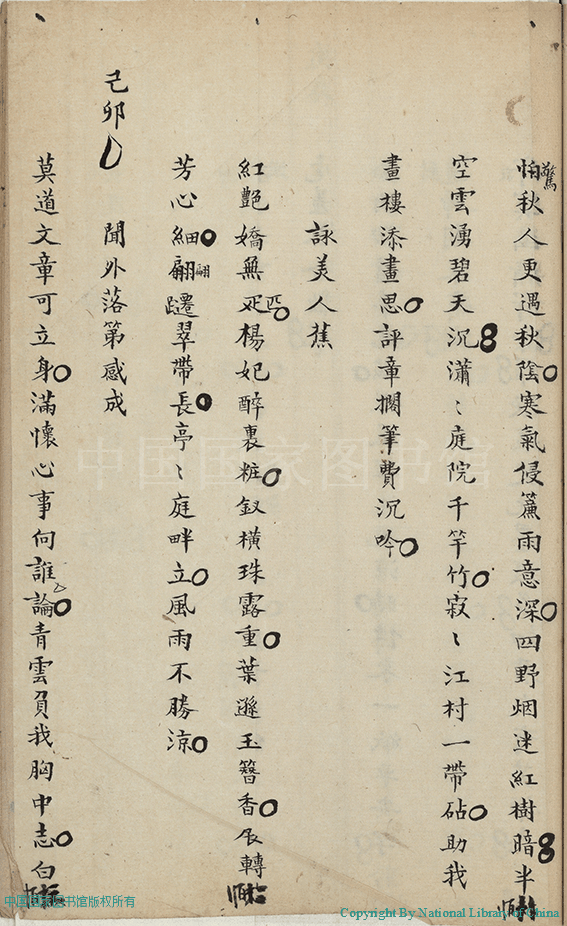 怕驚秋人更遇秋陰寒氣侵簾雨意深四野烟迷紅樹暗半
空雲湧碧天沉瀟〻庭院千竿竹寂〻江村一帶砧助我
畫樓添畫思評章擱筆費沉吟
詠美人蕉
紅艷嬌無疋匹楊妃醉裏粧釵橫珠露重葉遜玉簪香展轉
芳心細翩翩躚翠帶長亭〻庭畔立風雨不勝涼
己卯
聞外落第感成
莫道文章可立身滿懷心事向誰論青雲負我胸中志白
中国国家图书馆
中国国家图书馆版权所有
Copyright By National Library of China